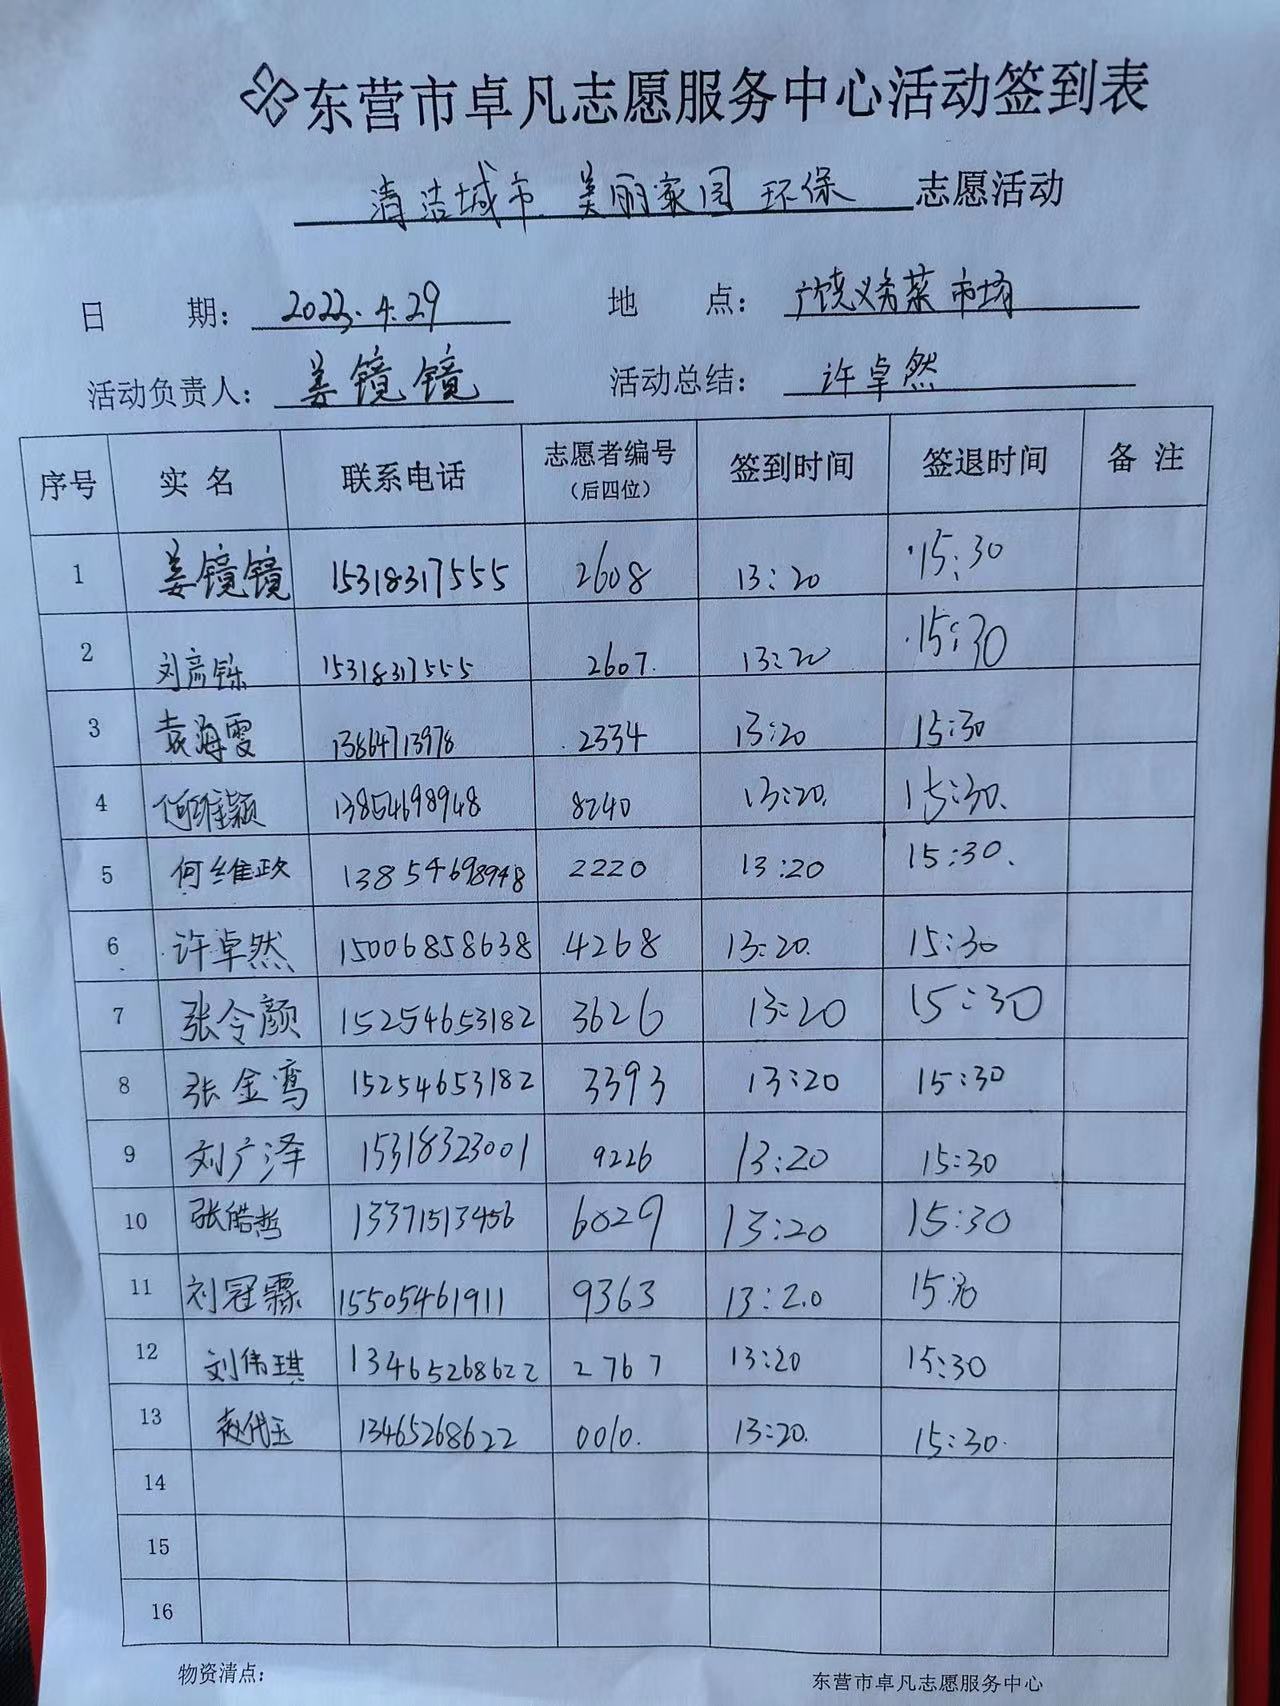 东营市卓凡志愿服务中心活动签到表
清洁城市 美丽家园 环保 志愿活动
日 期: 2023.4.29 地 点: 广饶义务菜市场
活动负责人: 姜镜镜 活动总结: 许卓然
序号 实名 联系电话 志愿者编号（后四位） 签到时间 签退时间 备注
1 姜镜镜 15318317555 2608 13:20 15:30
2 刘彦铄 15318317555 2607. 13:20 15:30
3 袁海雯 13864713978 2334 13:20 15:30
4 何维颖 13854698948 8240 13:20. 15:30.
5 何维政 13854698948 2220 13:20 15:30.
6 许卓然 15006858638 4268 13:20. 15:30
7 张令颜 15254653182 3626 13:20 15:30
8 张金鸾 15254653182 3393 13:20 15:30
9 刘广泽 15318323001 9226 13:20 15:30
10 张皓哲 13371513456 6029 13:20 15:30
11 刘冠霖 15505461911 9363 13:20 15:30
12 刘伟琪 13465268622 2767 13:20 15:30
13 赵代玉 13465268622 0010. 13:20. 15:30.
14
15
16
物资清点: 东营市卓凡志愿服务中心